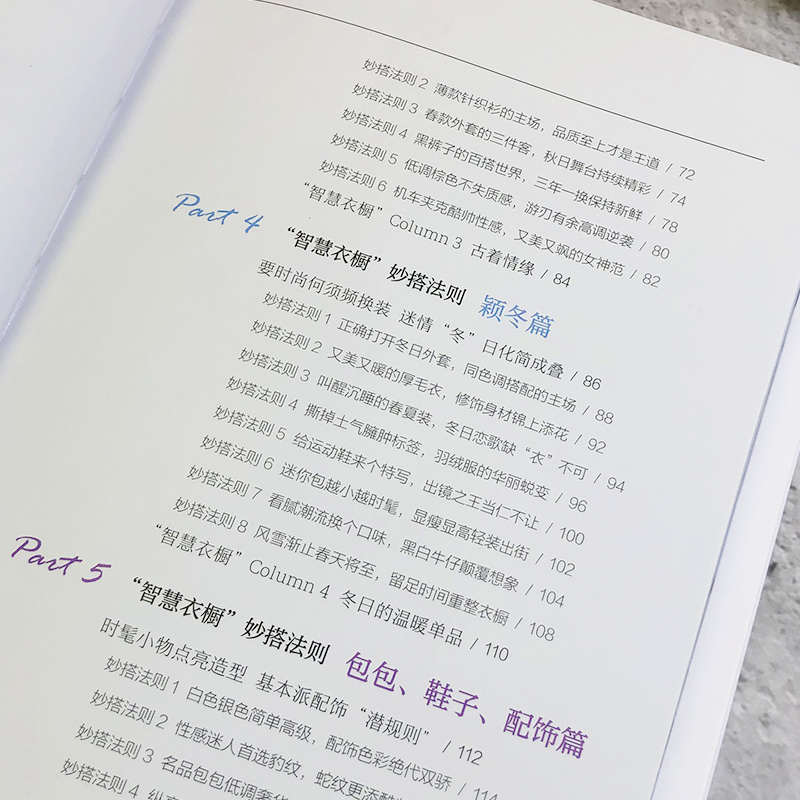 妙搭法则 2 薄款针织衫的主场，品质至上才是王道 / 72
妙搭法则 3 春款外套的三件客，秋日舞台持续精彩 / 74
妙搭法则 4 黑裤子的百搭世界，三年一换保持新鲜 / 78
妙搭法则 5 低调棕色不失质感，游刃有余高调逆袭 / 80
妙搭法则 6 机车夹克酷帅性感，又美又飒的女神范 / 82
“智慧衣橱” Column 3 古着情缘 / 84
Part 4 “智慧衣橱”妙搭法则 颖冬篇
要时尚何须频换装 迷情“冬”日化简成叠 / 86
妙搭法则 1 正确打开冬日外套，同色调搭配的主场 / 88
妙搭法则 2 又美又暖的厚毛衣，修饰身材锦上添花 / 92
妙搭法则 3 叫醒沉睡的春夏装，冬日恋歌缺“衣”不可 / 94
妙搭法则 4 撕掉土气臃肿标签，羽绒服的华丽蜕变 / 96
妙搭法则 5 给运动鞋来个特写，出镜之王当仁不让 / 100
妙搭法则 6 迷你包越小越时髦，显瘦显高轻装出街 / 102
妙搭法则 7 看腻潮流换个口味，黑白牛仔颠覆想象 / 104
妙搭法则 8 风雪渐止春天将至，留足时间重整衣橱 / 108
“智慧衣橱” Column 4 冬日的温暖单品 / 110
Part 5 “智慧衣橱”妙搭法则 包包、鞋子、配饰篇
时髦小物点亮造型 基本派配饰“潜规则” / 112
妙搭法则 1 白色银色简单高级，配饰色彩绝代双骄 / 114
妙搭法则 2 性感迷人首选豹纹，蛇纹更添酷
妙搭法则 3 名品包包低调奢华
妙搭法则 4 纵